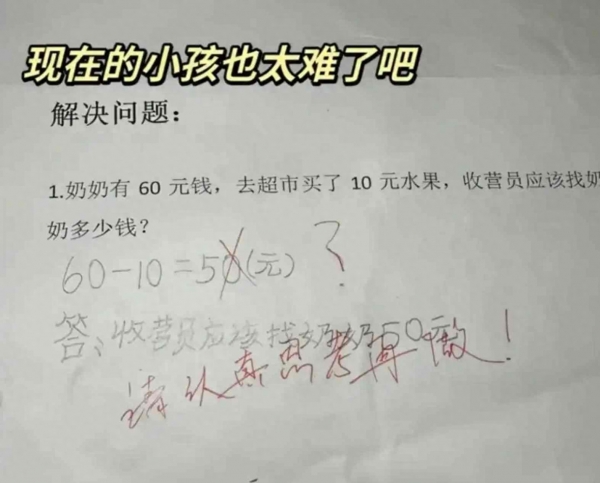 现在的小孩也太难了吧
解决问题：
1.奶奶有 60 元钱，去超市买了 10 元水果，收营员应该找奶
奶多少钱？
60-10=50(元) ?
答：收营员应该找奶奶50元
请认真思考再做！